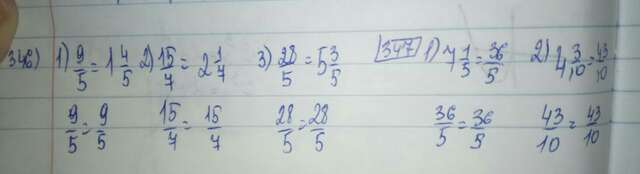 346) 1) 9/5 = 1 4/5 2) 15/7 = 2 1/7 3) 28/5 = 5 3/5 347 1) 7 1/5 = 36/5 2) 4 3/10 = 43/10
9/5 = 9/5 15/7 = 15/7 28/5 = 28/5 36/5 = 36/5 43/10 = 43/10